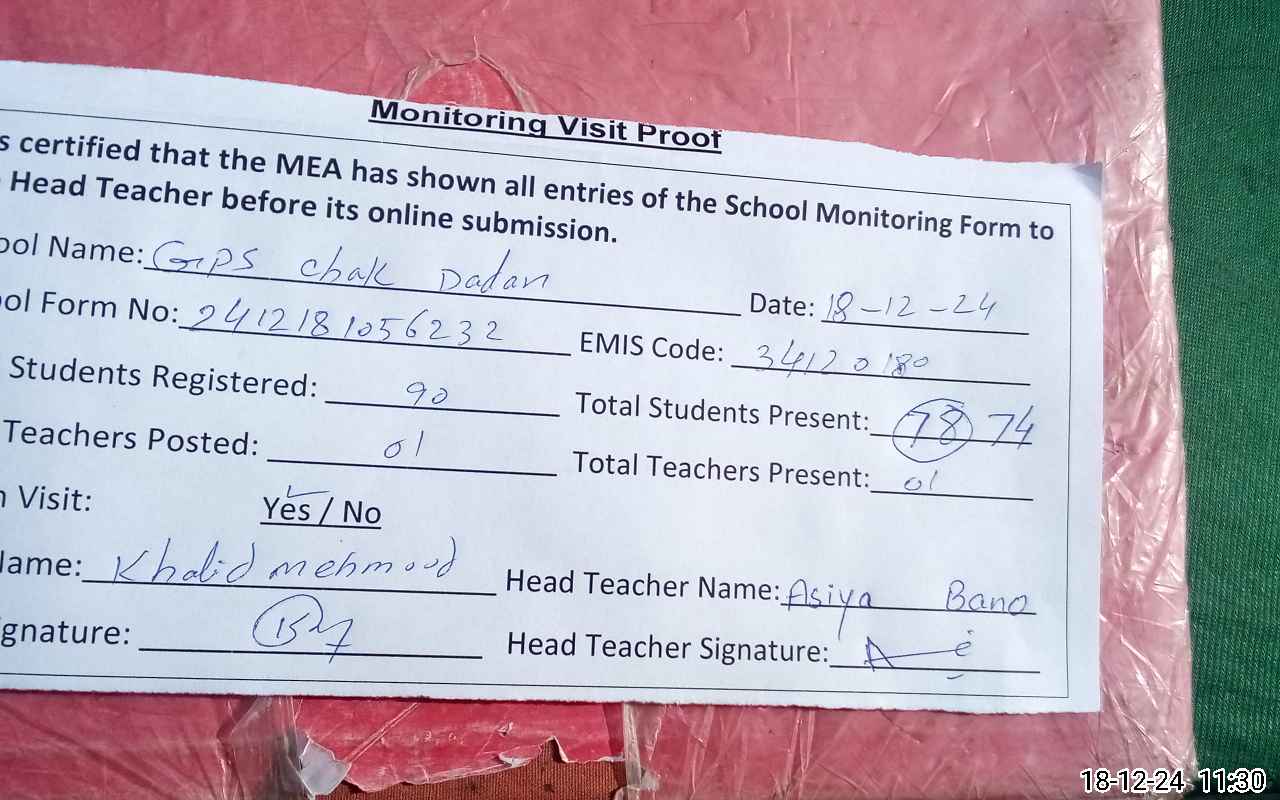 Monitoring Visit Proof
s certified that the MEA has shown all entries of the School Monitoring Form to
Head Teacher before its online submission.
ool Name: GPS chak Dadan Date: 18-12-24
ool Form No: 2412181056232 EMIS Code: 34120180
Students Registered: 90 Total Students Present: 78 74
Teachers Posted: 01 Total Teachers Present: 01
n Visit: Yes / No
Name: Khalid mehmood Head Teacher Name: Asiya Bano
gnature: Head Teacher Signature:
18-12-24 11:30